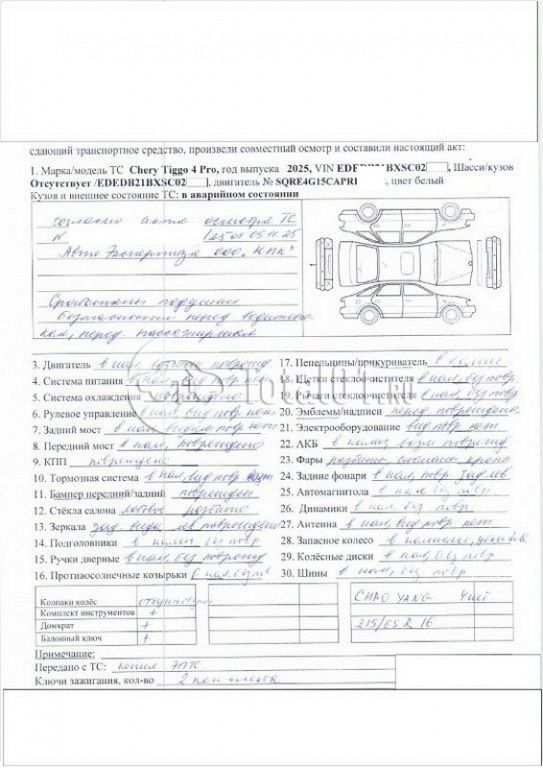 сдающий транспортное средство, произвели совместный осмотр и составили настоящий акт:
1. Марка/модель ТС Chery Tiggo 4 Pro, год выпуска 2025, VIN EDEDB21BXSC02, Шасси/кузов
Отсутствует /EDEDB21BXSC02, двигатель № SQRE4G15CAPRI, цвет белый
Кузов и внешнее состояние ТС: в аварийном состоянии
согласно акта осмотра ТС
N 05.11.25
Авто Экспертиза ООО "НПК"
Сработали подушки
безопасности перед
перед пассажиром
3. Двигатель в нал, повреж
4. Система питания в нал, вид повр нет
5. Система охлаждения повреждено
6. Рулевое управление в нал, вид повр нет
7. Задний мост в нал, повр нет
8. Передний мост в нал, повреждено
9. КПП повреждено
10. Тормозная система в нал, вид повр нет
11. Бампер передний/задний поврежден
12. Стёкла салона лобовое разбито
13. Зеркала зад. вида лев повреждено
14. Подголовники в налич без повр
15. Ручки дверные в нал, без поврежд
16. Противосолнечные козырьки в нал, без
17. Пепельницы/прикуриватель в налич
18. Щетки стеклоочистителя в нал, без повр
19. Рычаги стеклоочистителя в нал, без повр
20. Эмблемы/надписи перед повреждено
21. Электрооборудование вид повр нет
22. АКБ в налич возм поврежд
23. Фары разбиты, сломаны крепл
24. Задние фонари в нал, повр зад лев
25. Автомагнитола в нал без повр
26. Динамики в нал без повр
27. Антенна в нал, вид повр нет
28. Запасное колесо в наличии,
29. Колёсные диски в нал, без повр
30. Шины в нал, без повр
Колпаки колёс отсутствуют
Комплект инструментов +
Домкрат +
Балонный ключ +
CHAO YANG 4шт
215/65 R 16
Примечание:
Передано с ТС: копия ЭПТС
Ключи зажигания, кол-во 2 комплекта
TotalHit.ru